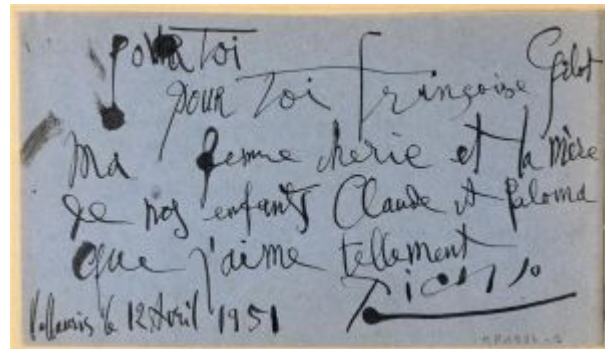 pour Toi
pour Toi Françoise Gilot
Ma femme cherie et la mère
de nos enfants Claude et Paloma
que j'aime tellement
Vallauris le 12 Avril 1951
Picasso